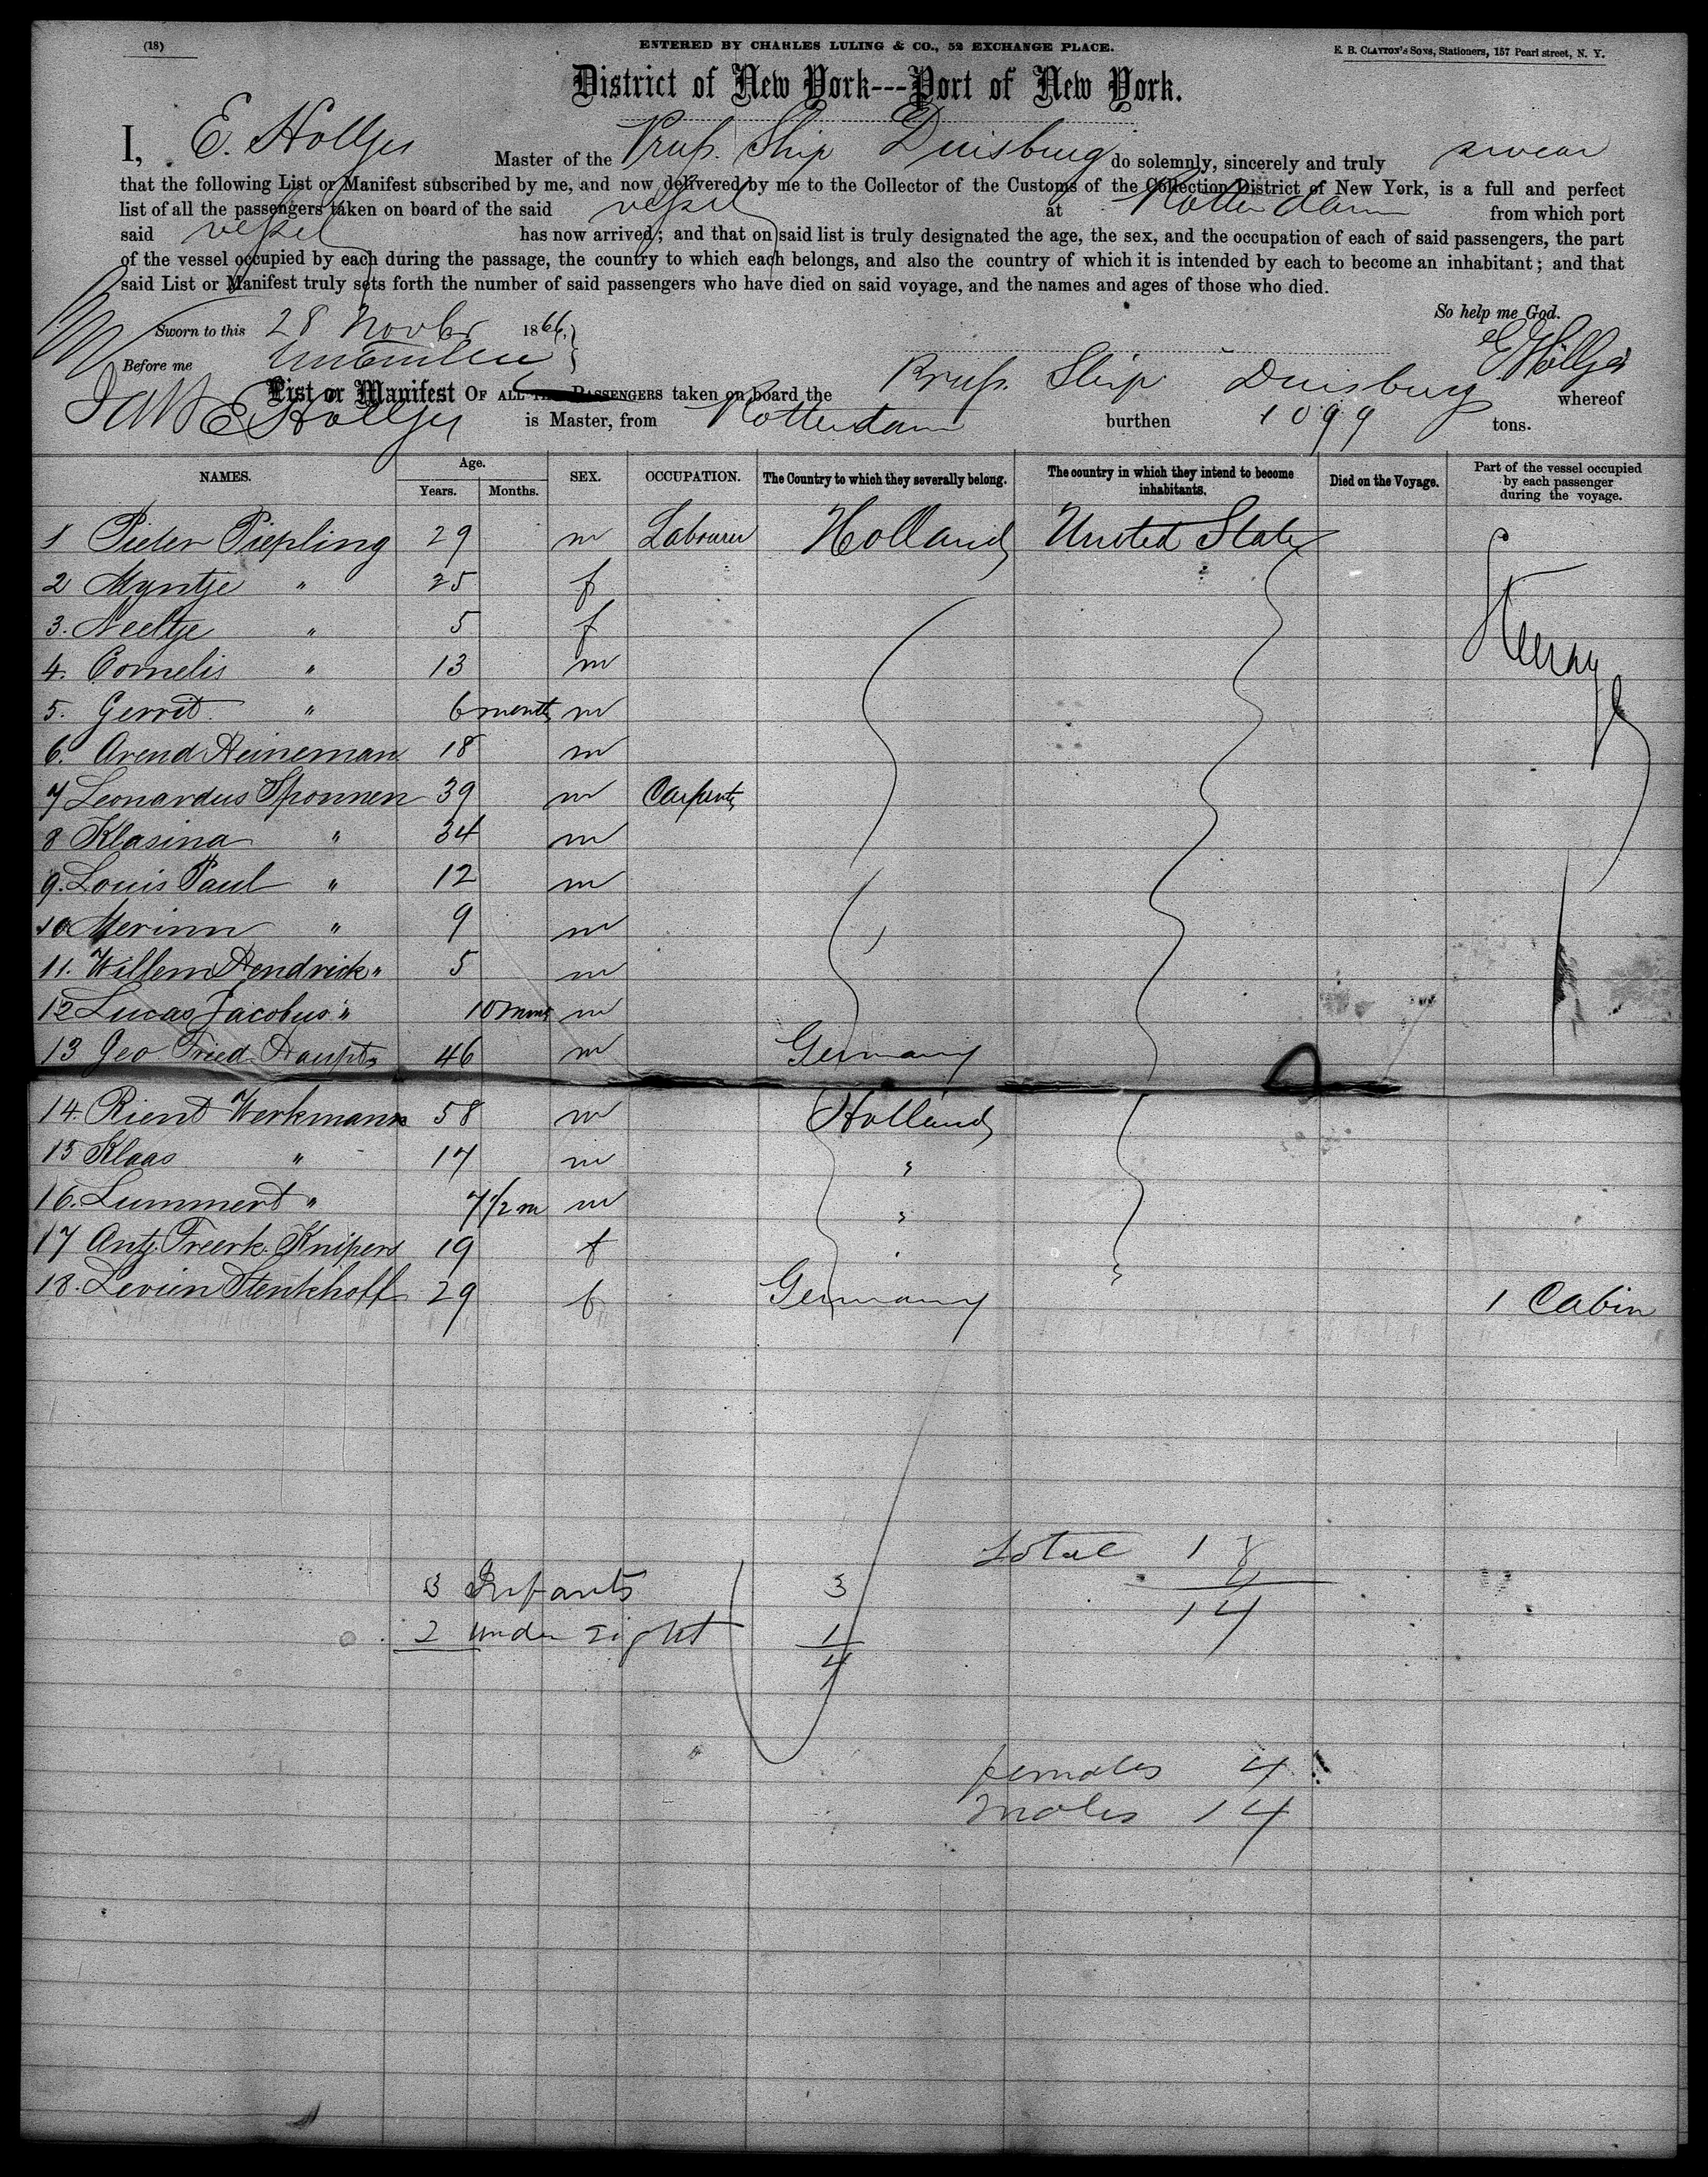 (18)
ENTERED BY CHARLES LULING & CO., 52 EXCHANGE PLACE.
E. B. CLAYTON'S SONS, Stationers, 157 Pearl street, N. Y.
District of New York---Port of New York.
I, E. Holljes Master of the Pruss. Ship Duisburg do solemnly, sincerely and truly swear
that the following List or Manifest subscribed by me, and now delivered by me to the Collector of the Customs of the Collection District of New York, is a full and perfect
list of all the passengers taken on board of the said vessel at Rotterdam from which port
said vessel has now arrived; and that on said list is truly designated the age, the sex, and the occupation of each of said passengers, the part
of the vessel occupied by each during the passage, the country to which each belongs, and also the country of which it is intended by each to become an inhabitant; and that
said List or Manifest truly sets forth the number of said passengers who have died on said voyage, and the names and ages of those who died.
So help me God.
Sworn to this 28 Novbr 1866.
E Holljes
Before me
List or Manifest OF ALL THE PASSENGERS taken on board the Pruss. Ship Duisburg whereof
E Holljes is Master, from Rotterdam burthen 1099 tons.
NAMES. Age. Years. Months. SEX. OCCUPATION. The Country to which they severally belong. The country in which they intend to become inhabitants. Died on the Voyage. Part of the vessel occupied by each passenger during the voyage.
1 Pieter Piepling 29 m Labourer Holland United States
2 Myntje " 25 f
3. Neeltje " 5 f
Steerage
4. Cornelis " 13 m
5. Gerrit " 6 months m
6. Arend Heineman 18 m
7 Leonardus Sponnen 39 m Carpente
8 Klasina " 34 m
9. Louis Paul " 12 m
10 Merinn " 9 m
11. Willem Hendrick " 5 m
12 Lucas Jacobus " 10 mons m
13 Geo Fried. Haupts 46 m Germany
14. Rient Werkmann 58 m Holland
15 Klaas " 17 m "
16. Lummert " 7 1/2 m m "
17 Antj. Freerk. Knipers 19 f "
18. Levien Stenkhoff 29 f Germany 1 Cabin
total 18
3 Infants 3 4
14
2 under Eight 1
4
females 4
Males 14